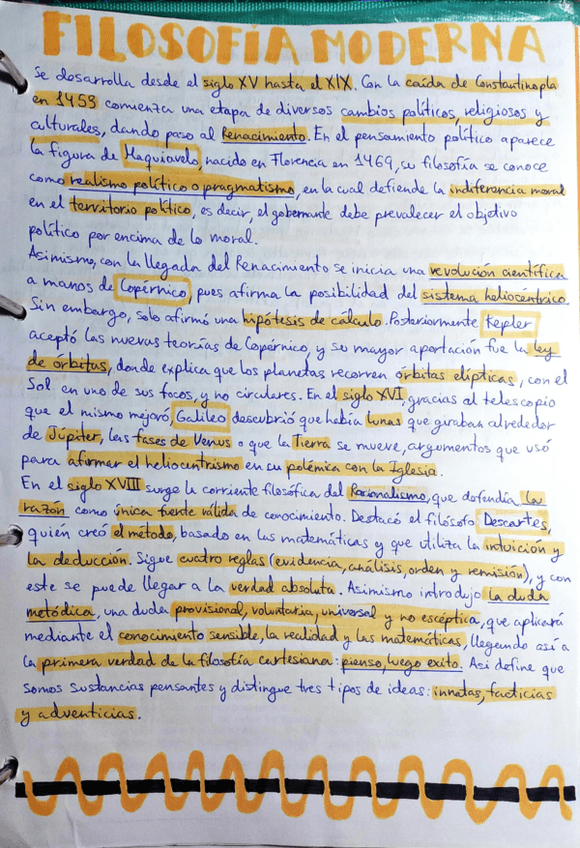 FILOSOFÍA MODERNA
Se desarrolla desde el siglo XV hasta el XIX. Con la caída de Constantinopla
en 1453 comienza una etapa de diversos cambios políticos, religiosos y
culturales, dando paso al Renacimiento. En el pensamiento político aparece
la figura de Maquiavelo, nacido en Florencia en 1469, su filosofía se conoce
como realismo político o pragmatismo, en la cual defiende la indiferencia moral
en el territorio político, es decir, el gobernante debe prevalecer el objetivo
político por encima de lo moral.
Asimismo, con la llegada del Renacimiento se inicia una revolución científica
a manos de Copérnico, pues afirma la posibilidad del sistema heliocéntrico.
Sin embargo, solo afirmó una hipótesis de cálculo. Posteriormente Kepler
aceptó las nuevas teorías de Copérnico, y su mayor aportación fue la ley
de órbitas, donde explica que los planetas recorren órbitas elípticas, con el
Sol en uno de sus focos, y no circulares. En el siglo XVI, gracias al telescopio
que el mismo mejoró, Galileo descubrió que había lunas que giraban alrededor
de Júpiter, las fases de Venus o que la Tierra se mueve, argumentos que usó
para afirmar el heliocentrismo en su polémica con la Iglesia.
En el siglo XVIII surge la corriente filosófica del Racionalismo, que defendía la
razón como única fuente válida de conocimiento. Destacó el filósofo Descartes,
quién creó el método, basado en las matemáticas y que utiliza la intuición y
la deducción. Sigue cuatro reglas (evidencia, análisis, orden y remisión), y con
este se puede llegar a la verdad absoluta. Asimismo introdujo la duda
metódica, una duda provisional, voluntaria, universal y no escéptica, que aplicará
mediante el conocimiento sensible, la realidad y las matemáticas, llegando así a
la primera verdad de la filosofía cartesiana: pienso, luego exito. Así define que
somos sustancias pensantes y distingue tres tipos de ideas: innatas, facticias
y adventicias.